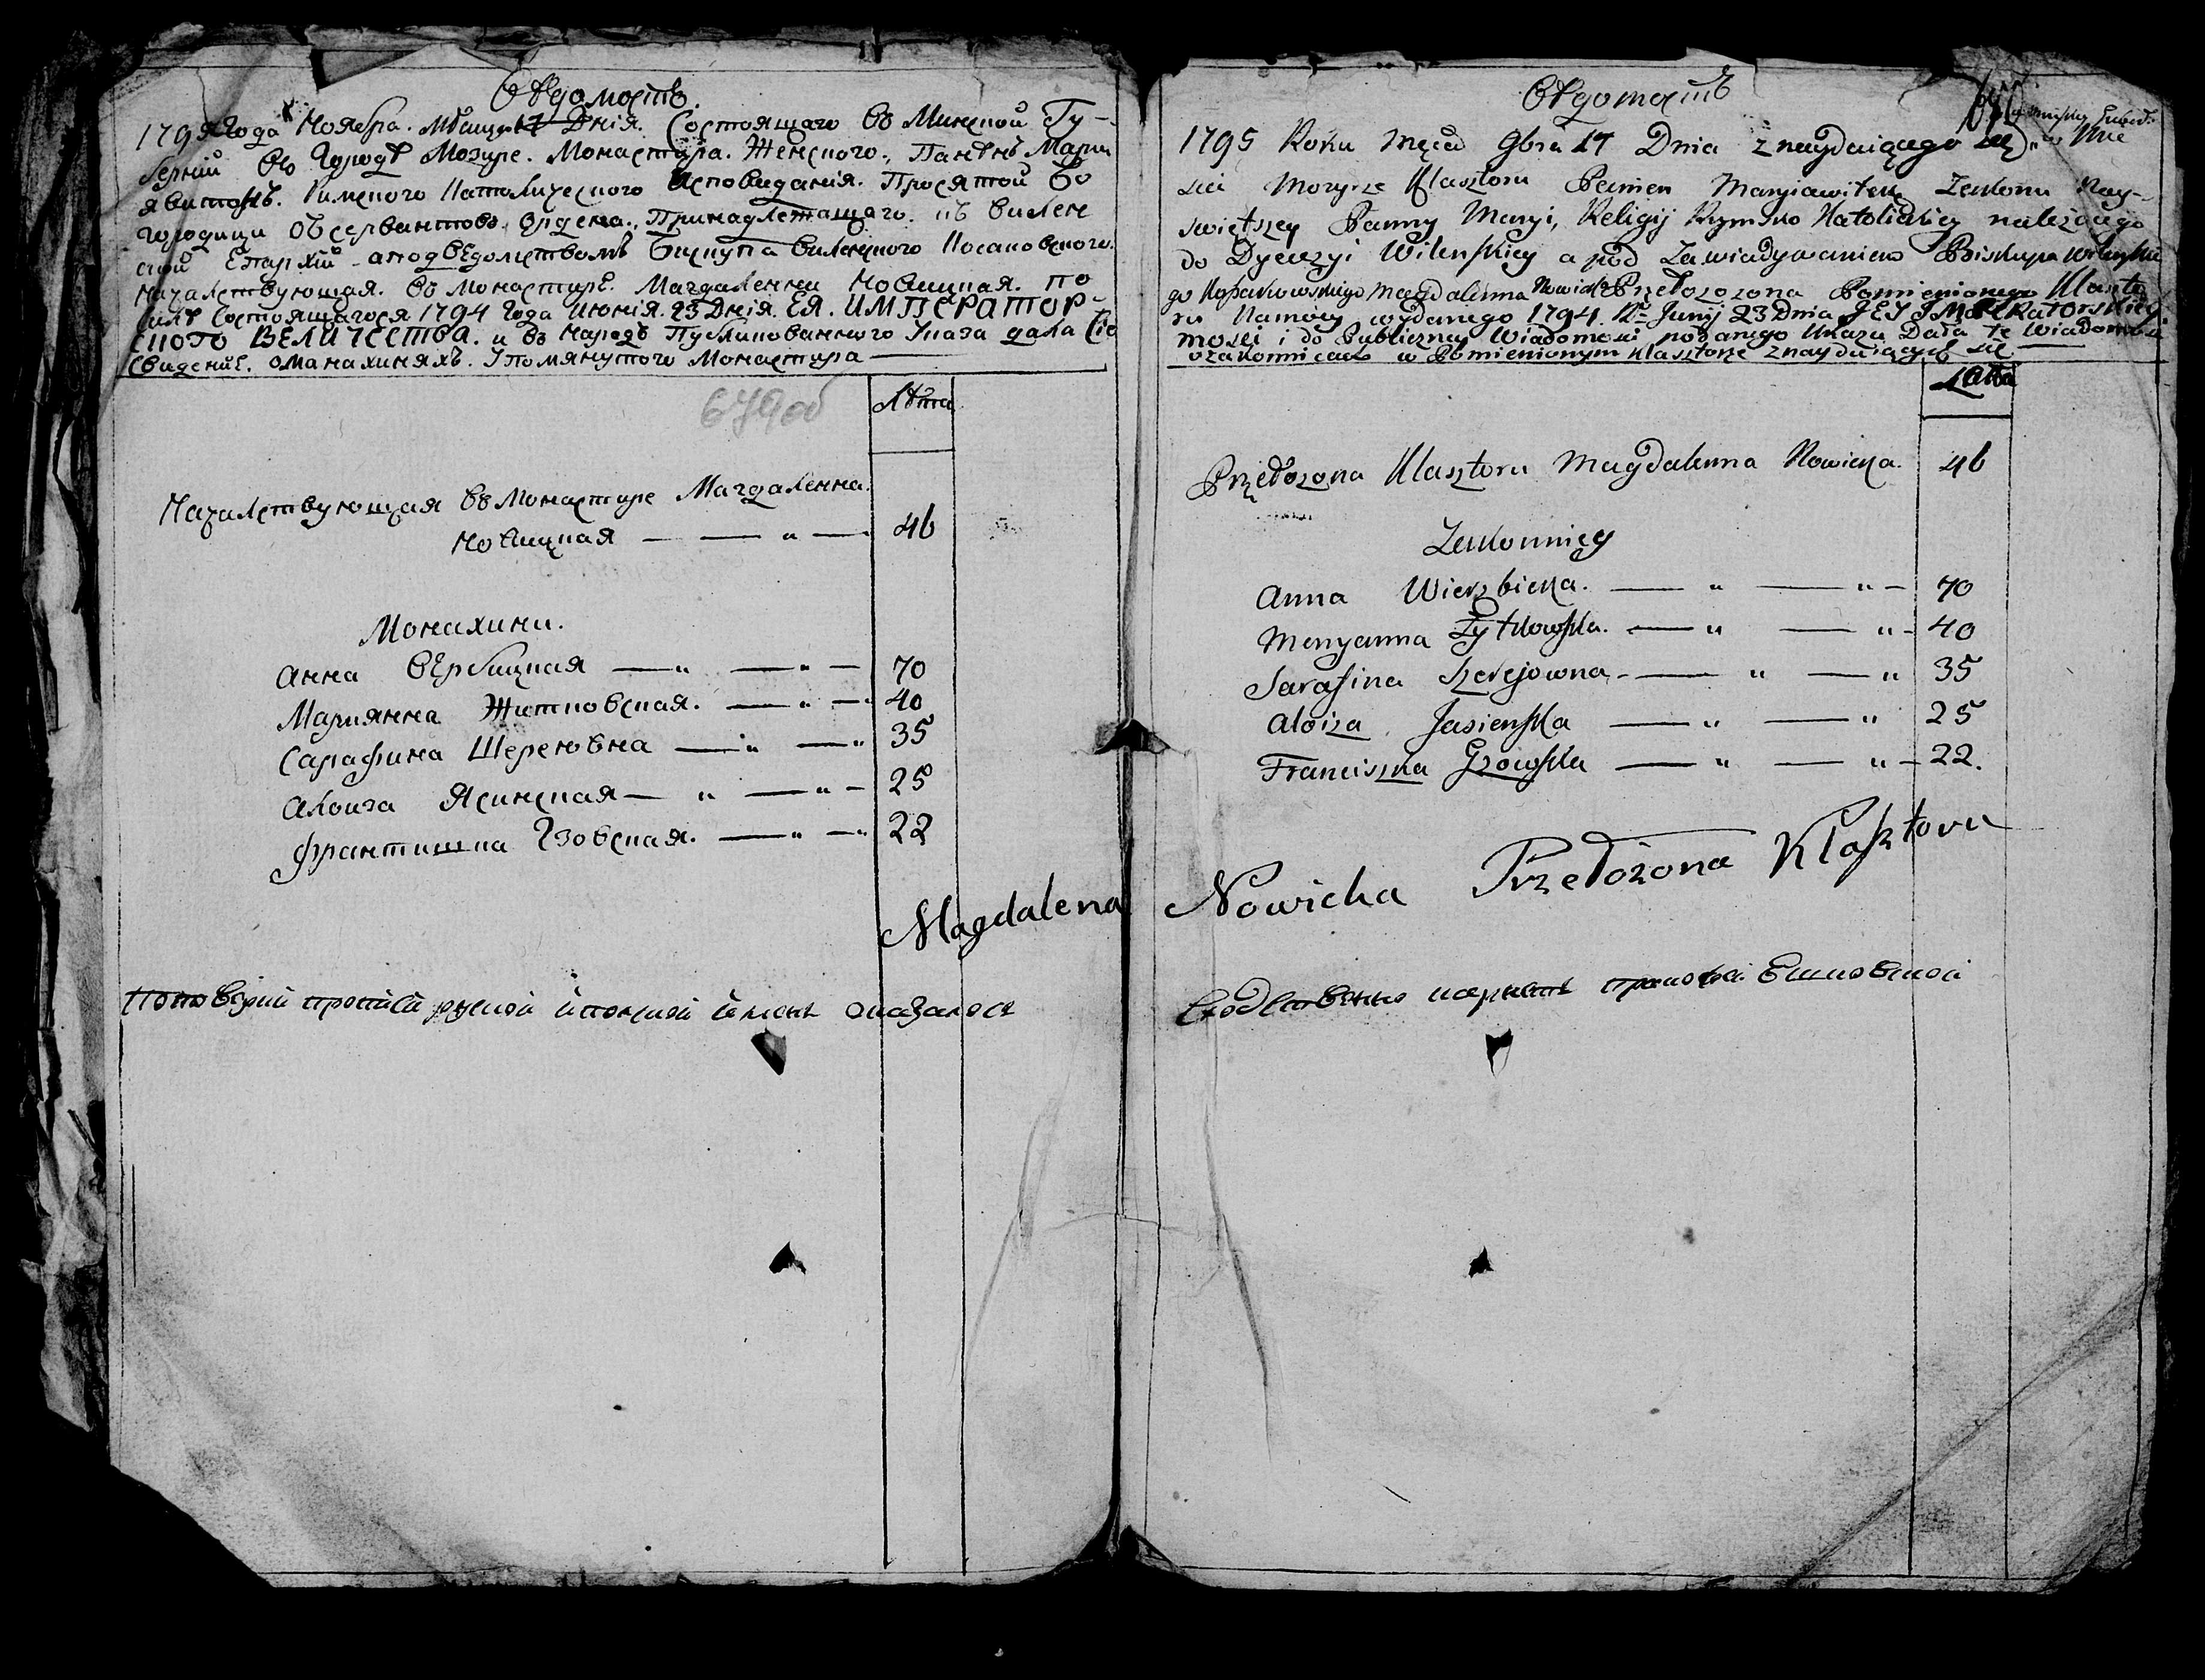 Вѣдомость
1795 Года Ноября. Мѣсяца 17 Днія. Состоящаго Во Минской Гу-
берніи Во Городѣ Мозире. Монастыра. Женского., Паненъ Мария
явитокъ. Римского Католического Исповиданія. Пресвятой Бо
городици Обсервантовъ Ордена., Принадлежащаго. къ Вилен
ской Епархіи - а под вѣдомствомъ Бискупа Виленского Косаковского.
Началствующая. Во Монастирѣ. Магдаленна Новицкая. по
силѣ Состоящагося 1794 Года Июнія. 23 Днія. ЕЯ. ИМПЕРАТОР-
СКОГО ВЕЛИЧЕСТВА. и во Народъ Публикованного Указа дала Сіе
Свидение. о Манахиняхъ. Упомянутого Монастира
679об
Лѣта
Началствующая во Монастире Магдаленна.
Новицкая — — " — 46
Монахини.
Анна Вербицкая — " — " — 70
Мариянна Житковская. — " — " 40
Сарафина Шереювна — " — " 35
Алоиза Ясинская — " — " — 25
Франтишка Гзовская. — " — " 22
Magdalena
Вѣдомость
w Minskiey Gubern.
1795 Roku Mcąa 9bra 17 Dnia znayduiącego się w Mie
scie Mozyrze Klasztoru Panien Maryiawitek Zakonu Nay-
swiętszey Panny Maryi, Religij Rzymsko Katolickiey należącego
do Dyecezyi Wilenskiey a pod Zawiadywaniem Biskupa Wilenskie
go Kossakowskiego Magdalenna Nowicka Przełożona Pomienionego Klaszto
ru Na mocy wydanego 1794 Junij 23 Dnia JEY IMPERATORSKIEY
mosci i do Publiczney Wiadomosci podanego Ukazu Dała tę Wiadomosc
o zakonnicach w Pomienionym Klasztorze znayduiących się
Lata
Przełożona Klasztoru Magdalenna Nowicka. 46
Zakonnicy
Anna Wierzbicka. — " — " — 70
Maryanna Żytkowska. — " — " - 40
Sarafina Szerejowna - — " — " 35
Aloiza Jasienska — " — " 25
Franciszka Gzowska — " — " — 22.
Nowicka Przełożona Klasztoru